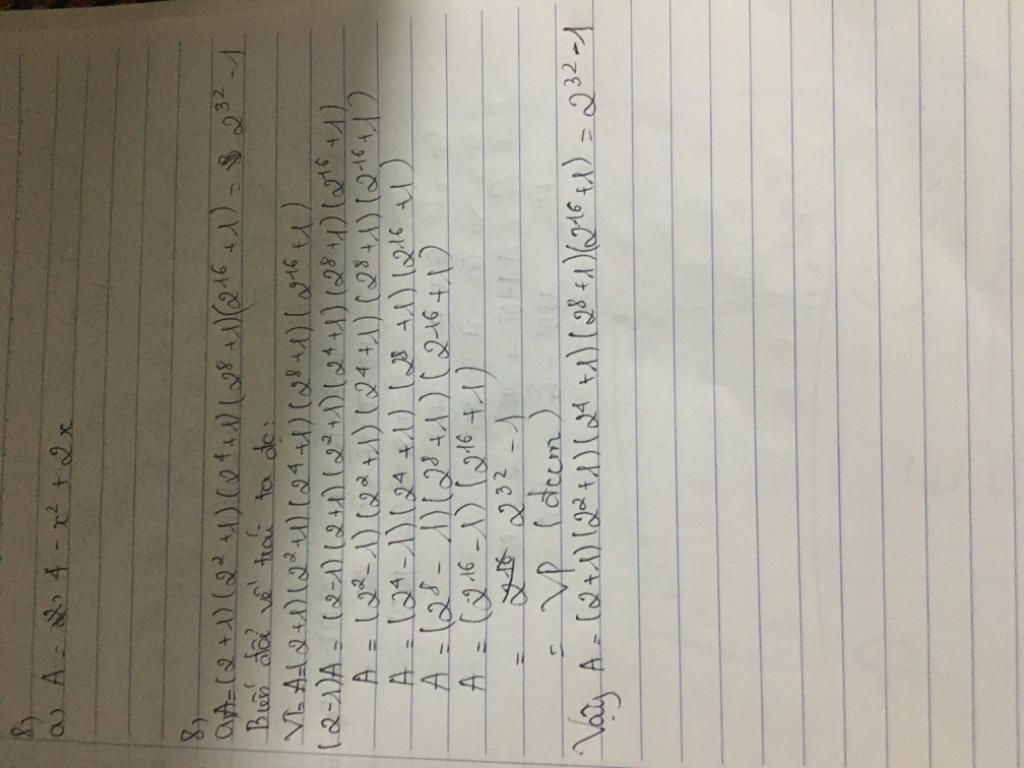 8,
a) A = 2. 4 - x² + 2x
8,
a, A = (2+1)(2²+1)(2⁴+1)(2⁸+1)(2¹⁶+1) = 2³² - 1
Biến đổi vế trái ta dc:
VT = A = (2+1)(2²+1)(2⁴+1)(2⁸+1)(2¹⁶+1)
(2-1)A = (2-1)(2+1)(2²+1)(2⁴+1)(2⁸+1)(2¹⁶+1)
A = (2²-1)(2²+1)(2⁴+1)(2⁸+1)(2¹⁶+1)
A = (2⁴-1)(2⁴+1)(2⁸+1)(2¹⁶+1)
A = (2⁸-1)(2⁸+1)(2¹⁶+1)
A = (2¹⁶-1)(2¹⁶+1)
= 2¹⁶ 2³² - 1
= VP (dcm)
Vậy A = (2+1)(2²+1)(2⁴+1)(2⁸+1)(2¹⁶+1) = 2³² - 1